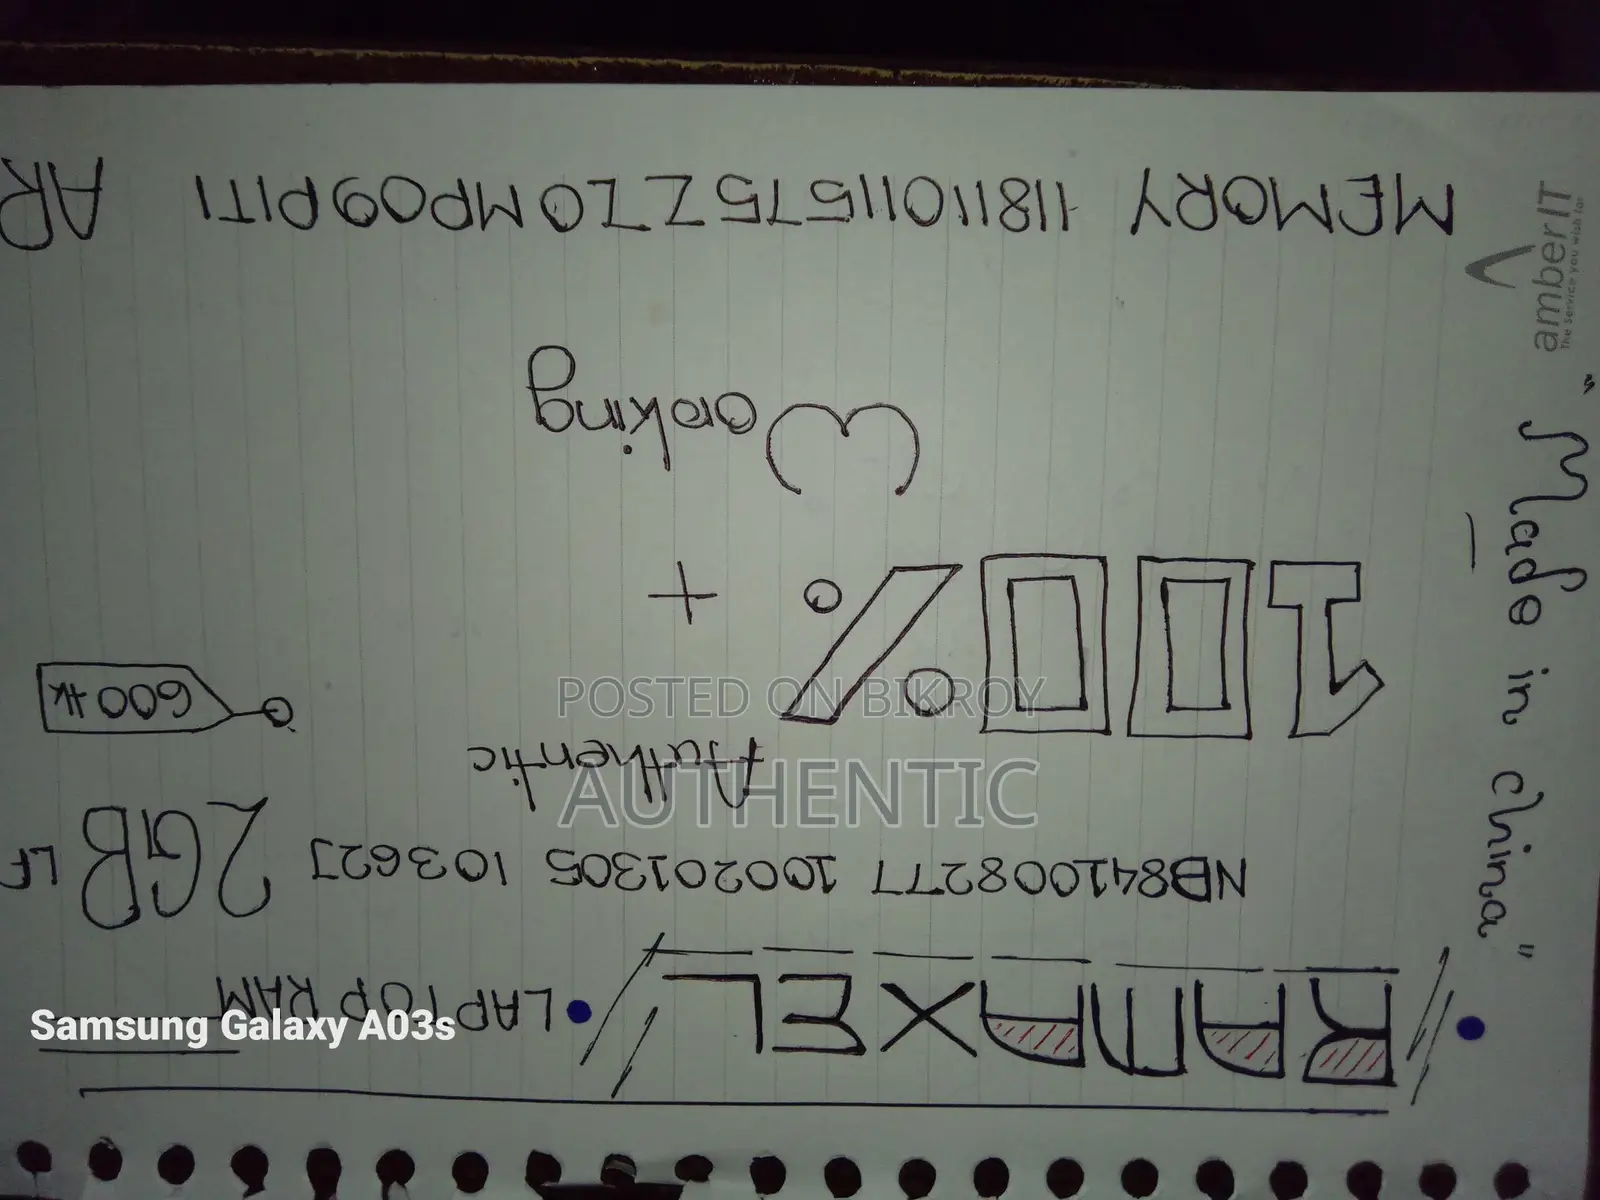 RAMAXEL • LAPTOP RAM
NB841008277 100201305 10362J 2GB LF
Authentic
600 tk
100% + Working
MEMORY 11811011575ZI0MP09PITI AR
"Made in China"
amberIT
The service you wish for
POSTED ON BIKROY
AUTHENTIC
Samsung Galaxy A03s